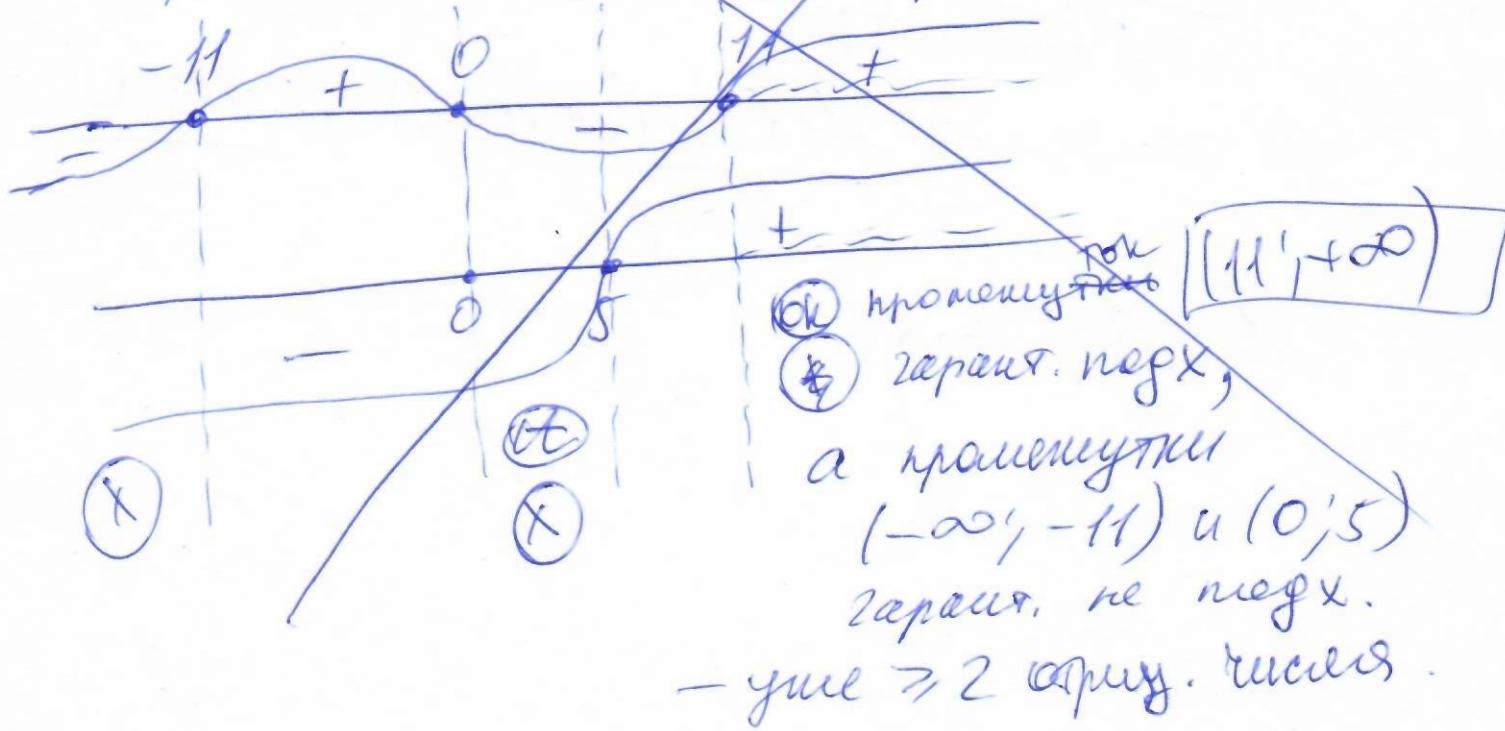 -11 0 11
- + - +
+
0 5
-
ок промежуток (11; +∞)
гарант. подх,
а промежутки
X X (-∞; -11) и (0; 5)
гарант. не подх.
— уже ⩾ 2 отриц. числа.